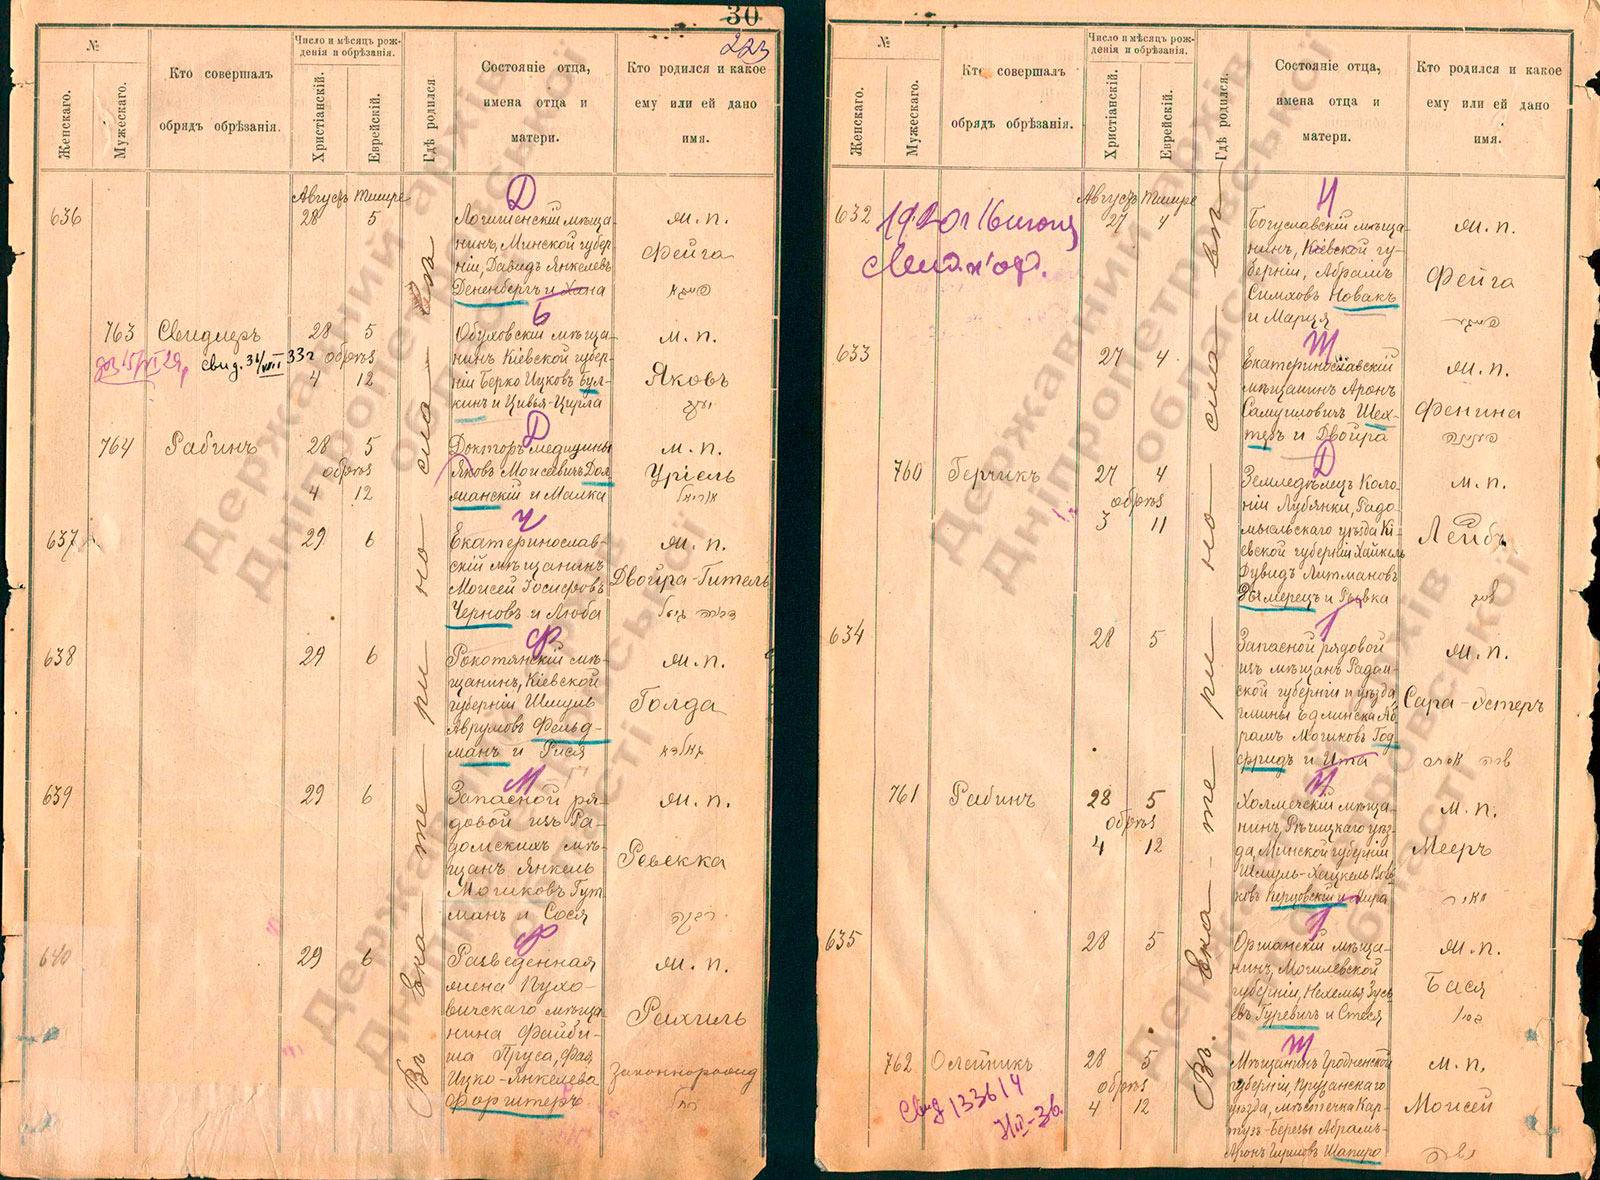 30
223
№
Женскаго.
Мужескаго.
Кто совершалъ
обрядъ обрѣзанія.
Число и мѣсяцъ рож-
денія и обрѣзанія.
Христіанскій.
Еврейскій.
Гдѣ родился
Состояніе отца,
имена отца и
матери.
Кто родился и какое
ему или ей дано
имя.
Въ Екатеринославѣ
Августъ Тишре
636
28 5
Д
Логишенскій мѣща-
нинъ, Минской губер-
ніи, Давидъ Янкелевъ
Дененбергъ и Хана
ж. п.
Фейга
פייגא
763 Свидлеръ
28 5
обрѣз
4 12
свид. 31/VIII 33г
Б
Обуховскій мѣща-
нинъ Кіевской губер-
ніи Берко Ицковъ Бул-
кинъ и Цивья-Цирла
м. п.
Яковъ
יעקב
764 Рабинъ
28 5
обрѣз
4 12
Д
Докторъ медицины
Яковъ Моисеевичъ Дол-
манскій и Малка
м. п.
Уріель
אוריאל
637
29 6
Ч
Екатеринослав-
скій мѣщанинъ
Моисей Іосифовъ
Черновъ и Люба
ж. п.
Двойра-Гитель
638
29 6
Ф
Рокотянскій мѣ-
щанинъ, Кіевской
губерніи Шмуль
Аврумовъ Фельд-
манъ и Рися
ж. п.
Голда
גאלדא
639
29 6
Запасной ря-
довой изъ Ра-
домскихъ мѣ-
щанъ Янкель
Мошковъ Гут-
манъ и Сося
ж. п.
Ревекка
רבקה
640
29 6
Ф
Разведенная
жена Пухо-
вичскаго мѣща-
нина Файби-
ша Пруса, Фая
Ицко-Янкелева
Форштеръ
ж. п.
Рахиль
רחל
№
Женскаго.
Мужескаго.
Кто совершалъ
обрядъ обрѣзанія.
Число и мѣсяцъ рож-
денія и обрѣзанія.
Христіанскій.
Еврейскій.
Гдѣ родился.
Состояніе отца,
имена отца и
матери.
Кто родился и какое
ему или ей дано
имя.
Въ Екатеринославѣ
Августъ Тишре
632
27 4
Н
Богуславскій мѣща-
нинъ, Кіевской гу-
берніи, Абрамъ
Симховъ Новакъ
и Марця
ж. п.
Фейга
פייגא
633
27 4
Ш
Екатеринославскій
мѣщанинъ Аронъ
Самуиловичъ Шех-
теръ и Двойра
ж. п.
Фенина
760 Герчикъ
27 4
обрѣз
3 11
Земледѣлецъ Коло-
ніи Лубянки, Радо-
мысльскаго уѣзда Кі-
евской губерніи Хайкель
Дувидъ Литмановъ
и Рывка
м. п.
Лейбъ
לייב
634
28 5
Г
Запасной рядовой
изъ мѣщанъ Радом-
ской губерніи и уѣзда,
гмины Едлинска Аб-
рамъ Мошковъ Год-
фридъ и Ита
ж. п.
Сара-Эстеръ
שרה אסתר
761 Рабинъ
28 5
обрѣз
4 12
Холмечскій мѣща-
нинъ, Рѣчицкаго уѣз-
да, Минской губерніи
м. п.
Мееръ
מאיר
635
28 5
Г
Оршанскій мѣща-
нинъ, Могилевской
губерніи, Нехемья Зусь-
евъ Гуревичъ и Стеся
ж. п.
Бася
באסי
762 Олейникъ
28 5
обрѣз
4 12
Ш
Мѣщанинъ Гродненской
губерніи, Пружанскаго
уѣзда, мѣстечка Кар-
тузъ-Березы Абрамъ-
Шапиро
м. п.
Моисей
משה
Державний архів
Дніпропетровської
області